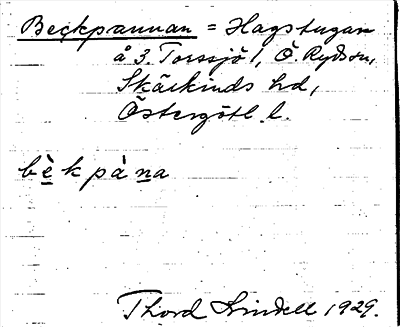 Beckpannan = Hagstugan
å 3. Torssjö 1, Ö. Ryd sn,
Skärkinds hd,
Östergötl. l.
bèkpàna
Thord Lindell 1929.